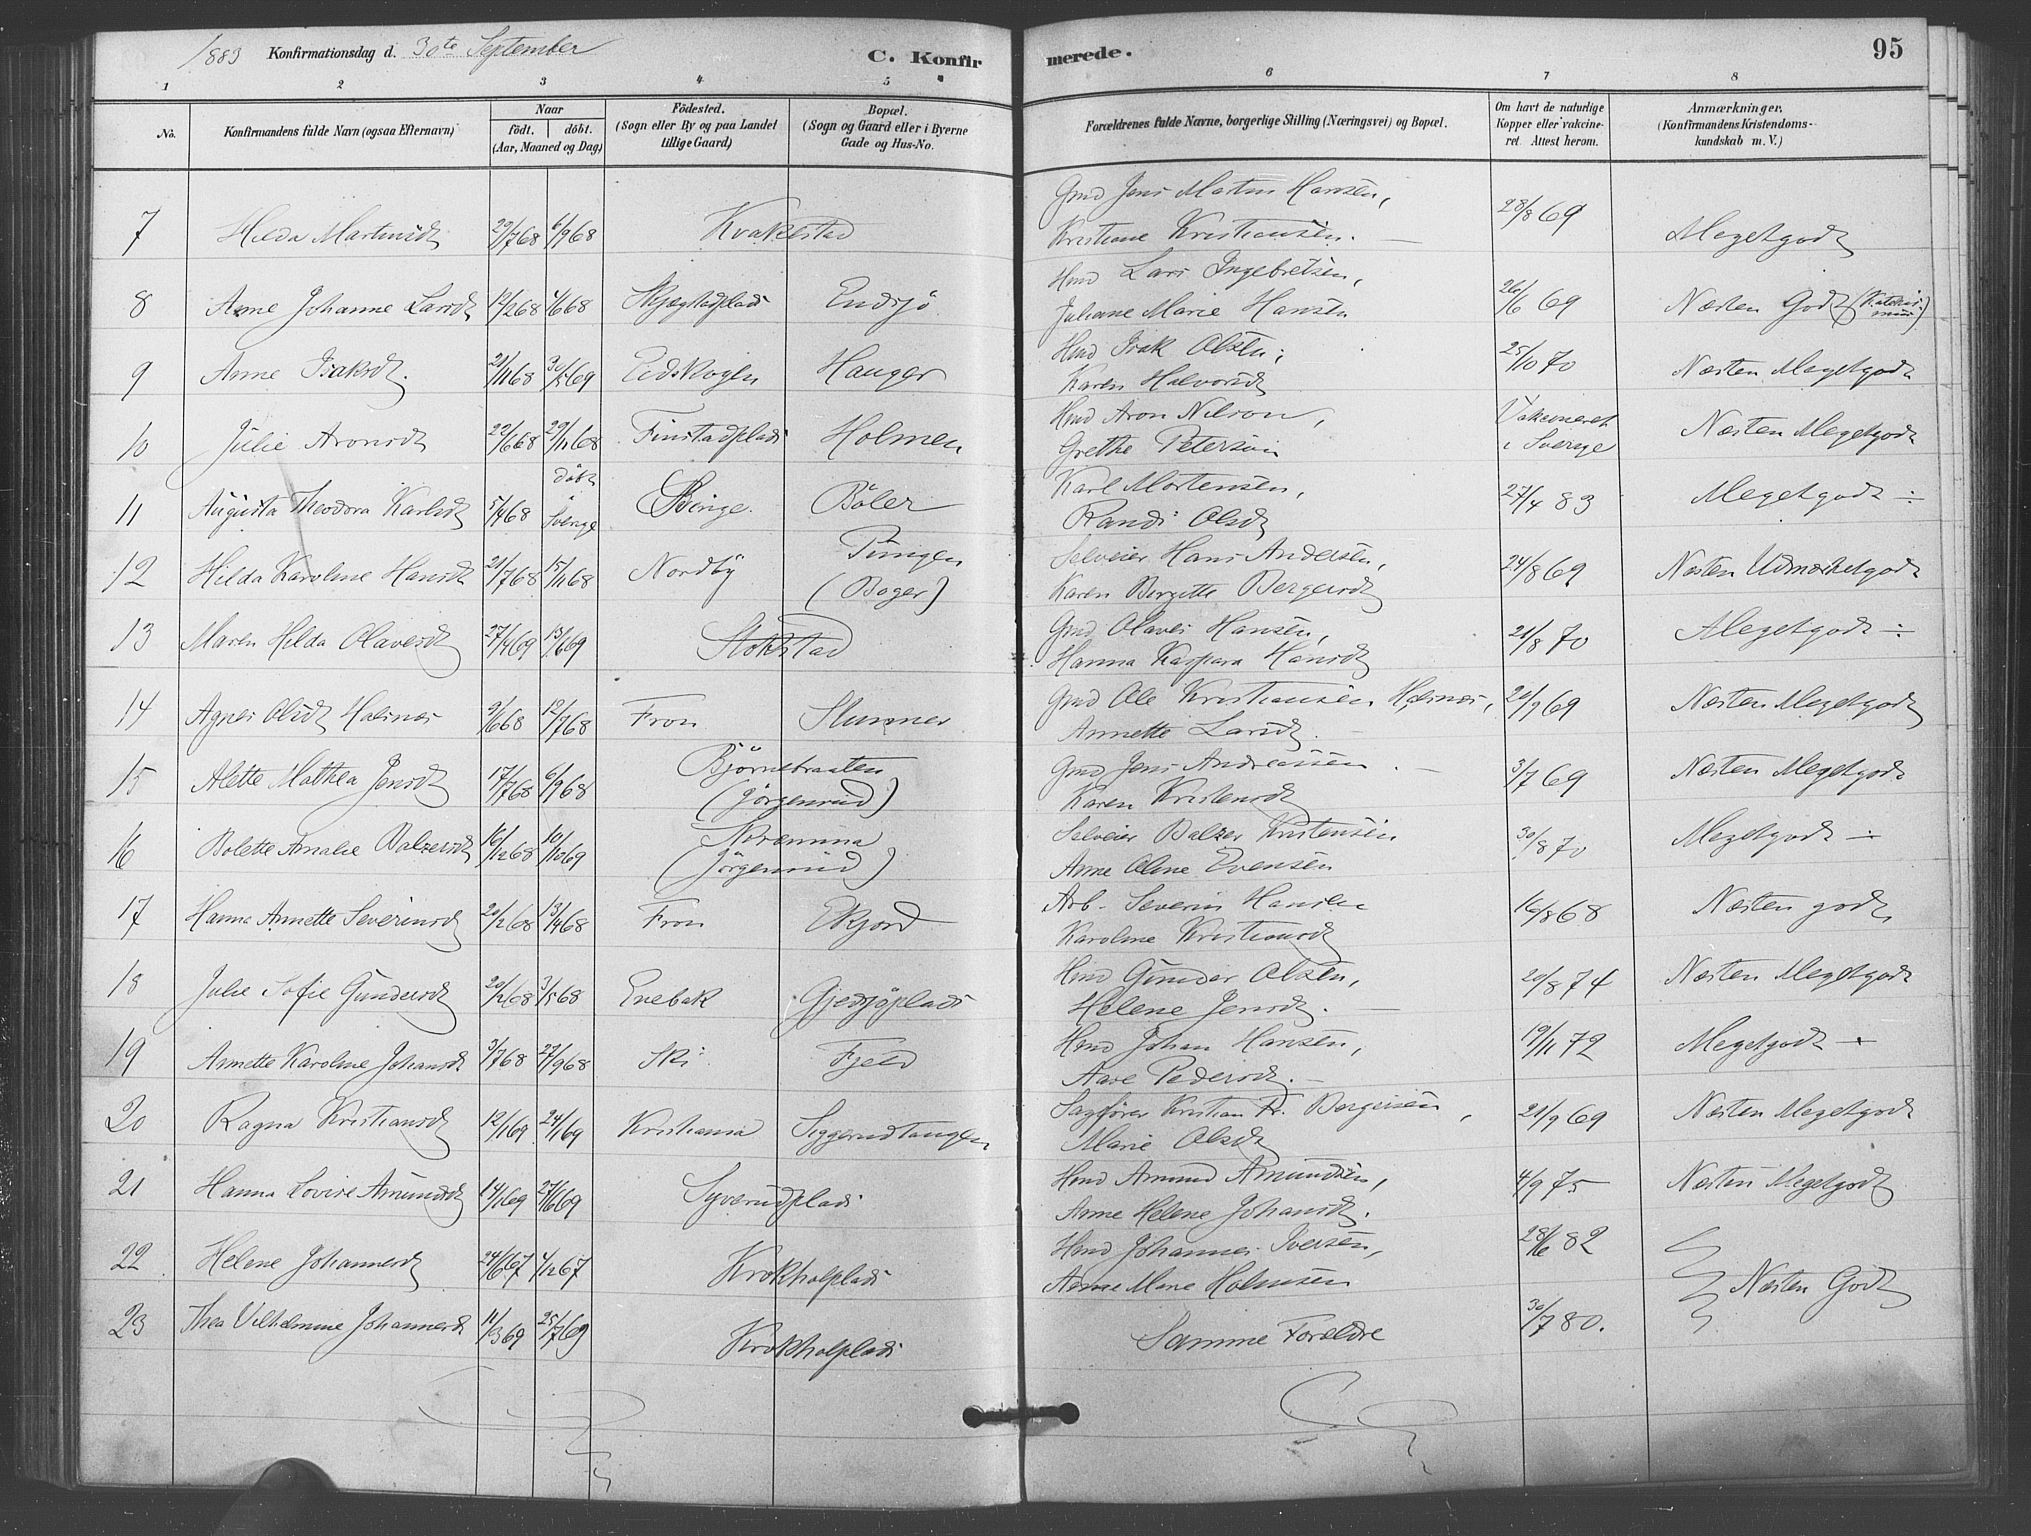 1883 Konfirmationsdag d. 30te September
C. Konfirmerede.
95
1 2 3 4 5 6 7 8
No.
Konfirmandens fulde Navn (ogsaa Efternavn)
Naar
födt. döbt.
(Aar, Maaned og Dag)
Födested.
(Sogn eller By og paa Landet
tillige Gaard)
Bopæl.
(Sogn og Gaard eller i Byerne
Gade og Hus-No.
Forældrenes fulde Navne, borgerlige Stilling (Næringsvei) og Bopæl.
Om havt de naturlige
Kopper eller vakcine-
ret. Attest herom.
Anmærkninger.
(Konfirmandens Kristendoms-
kundskab m. V.)
7 Hilda Martinsdt 29/7 68 6/9 68 Kvakestad
Gmd Jens Martin Hansen,
Kristiane Kristiansen. 28/8 69 Megetgodt
8 Anne Johanne Larsdt 12/2 68 1/6 68 Skjegstadplads Endsjø
Hmd Lars Ingebretsen,
Juliane Marie Hansen 26/6 69 Næsten Godt (Katekismus)
9 Anne Isaksdt. 21/11 68 30/5 69 Eidskogen Hauger
Hmd Isak Olsen,
Karen Halvorsdt 25/10 70 Næsten Megetgodt
10 Julie Aronsdt 22/6 68 29/11 68 Finstadplads Holmen
Hmd Aron Nilson,
Grethe Peterson Vakcineret i Sverige Næsten Megetgodt
11 Augusta Theodora Karlsdt 5/4 68 döbt Sverige Bøler
Karl Mortensen,
Randi Olsdt 27/4 83 Megetgodt ÷
12 Hilda Karoline Hansdt 21/7 68 15/11 68 Nordby Pungen
(Boger)
Selveier Hans Andersen,
Karen Birgitte Bergersdt 24/8 69 Næsten Udmærketgodt
13 Maren Hilda Olavesdt 27/4 69 13/6 69 Stokstad
Gmd Olaves Hansen,
Hanna Kaspara Hansdt 21/8 70 Megetgodt ÷
14 Agnes Olsdt Halsnes 9/6 68 12/7 68 Fron Slumner
Gmd Ole Kristiansen Halsnes,
Annette Larsdt. 20/9 69 Næsten Megetgodt
15 Alette Mathea Jensdt 17/7 68 6/9 68 Bjørnebraaten
(Jørgenrud)
Gmd Jens Andreassen
Karen Kristensdt 3/7 69 Næsten Megetgodt
16 Bolette Amalie Balzersdt 16/12 68 10/10 69
(Jørgenrud)
Selveier Balzer Kristensen
Anne Oline Evensen 30/8 70 Megetgodt ÷
17 Hanna Annette Severinsdt 20/2 68 13/4 68 Fron Ekjord
Arb. Severin Hansen
Karoline Kristiansdt 16/8 68 Næsten godt
18 Julie Sofie Gundersdt 20/2 68 3/5 68 Enebak Gjedsjøplads
Hmd Gunder Olsen,
Helene Jensdt. 20/8 74 Næsten Megetgodt
19 Annette Karoline Johansdt 3/7 68 27/9 68 Ski Fjeld
Hmd Johan Hansen,
Aase Pedersdt. 19/11 72 Megetgodt ÷
20 Ragna Kristiansdt 12/1 69 24/1 69 Kristiania Siggerudtangen
Sagfører Kristian Fr. Bergersen,
Marie Olsdt 21/9 69 Næsten Megetgodt
21 Hanna Lovise Amundsdt 14/1 69 27/6 69 Syverudplads
Hmd Amund Amundsen,
Anne Helene Johansdt. 4/9 75 Næsten Megetgodt
22 Helene Johannesdt 24/6 67 1/12 67 Krokholplads
Hmd Johannes Iversen,
Anne Marie Holmsen 28/6 82 Næsten Godt
23 Thea Vilhelmine Johannesdt 11/3 69 25/7 69 Krokholplads
Samme Forældre 30/7 80.